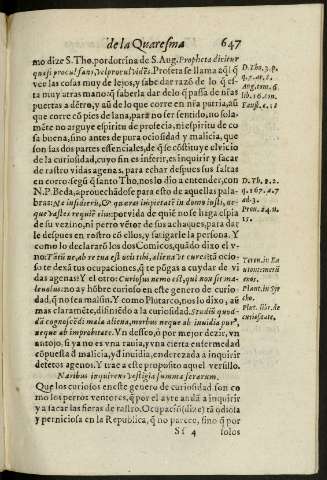 de la Quaresma 647
mo dize S.Tho.por dotrina de S. Aug. Propheta dicitur
quasi procul fans, vel procul videns. Profeta se llama aql q̃
vee las cosas muy de lejos, y sabe dar razõ de lo q̃ es-
ta muy atras mano: q̃ saberla dar delo q̃ passa de nr̃as
puertas a dẽtro, y aũ de lo que corre en nr̃a patria, aũ
que corre cõ pies de lana, para no ser sentido, no sola-
mẽte no arguye espiritu de profecia, ni espiritu de co
sa buena, sino antes de pura ociosidad y malicia, que
son las dos partes essenciales, de q̃ se cõstituye el vicio
de la curiosidad, cuyo fin es inferir, es inquirir y sacar
de rastro vidas agenas, para echar despues sus faltas
en corro. segũ q̃ santo Tho, nos lo dio a entender, con
N.P. Beda, aprouechãdose para esto de aquellas pala-
bras: Ne insidieris, & quæras impietatẽ in domo iusti, ne-
que vastes requiẽ eius: por vida de quiẽ no se haga espia
de su vezino, ni perro vẽtor de sus achaques, para dar
le despues en rostro cõ ellos, y fatigarle la persona. Y
como lo declararõ los dos Comicos, quãdo dixo el v-
no: Tãtũ ne, ab re tua est ocij tibi, aliena vt cures? tã ocio-
so te dexã tus ocupaciones, q̃ te põgas a cuydar de vi
das agenas? Y el otro: Curiosus nemo est, qui non sit ma-
leuolus: no ay hõbre curioso en este genero de curio-
dad, q̃ no sea malsin. Y como Plutarco, nos lo dixo, aũ
mas claramẽte, difiniẽdo a la curiosidad. Studiũ quod-
dã cognoscẽdi mala aliena, morbus neque ab inuidia pur9,
neque ab improbitate. Vn desseo, ó por mejor dezir, vn
antojo, si ya no es vna rauia, y vna cierta enfermedad
cõpuesta d̃ malicia, y d̃ inuidia, enderezada a inquirir
defetos agenos. Y trae a este proposito aquel versillo.
Naribus inquirens vestigia summa ferarum.
Que los curiosos en este genero de curiosidad son co
mo los perros ventores, q̃ por el ayre andã a inquirir
y a sacar las fieras de rastro. Ocupaciõ (dize) tã odiosa
y perniciosa en la Republica, q̃ no parece, sino q̃ por
Sf 4 solos
D. Tho. 3. p.
q. 7. ar. 8.
Aug. tom. 6.
lib. 16. con.
Faust. c. 18
D. Th. 2. 2.
q. 167. a. 7
ad. 3.
Prou. 24. n.
15.
Teren. in Ea
utontimoru
menos.
Plaut. in Sty
cho.
Plut. libr. de
curiositate.